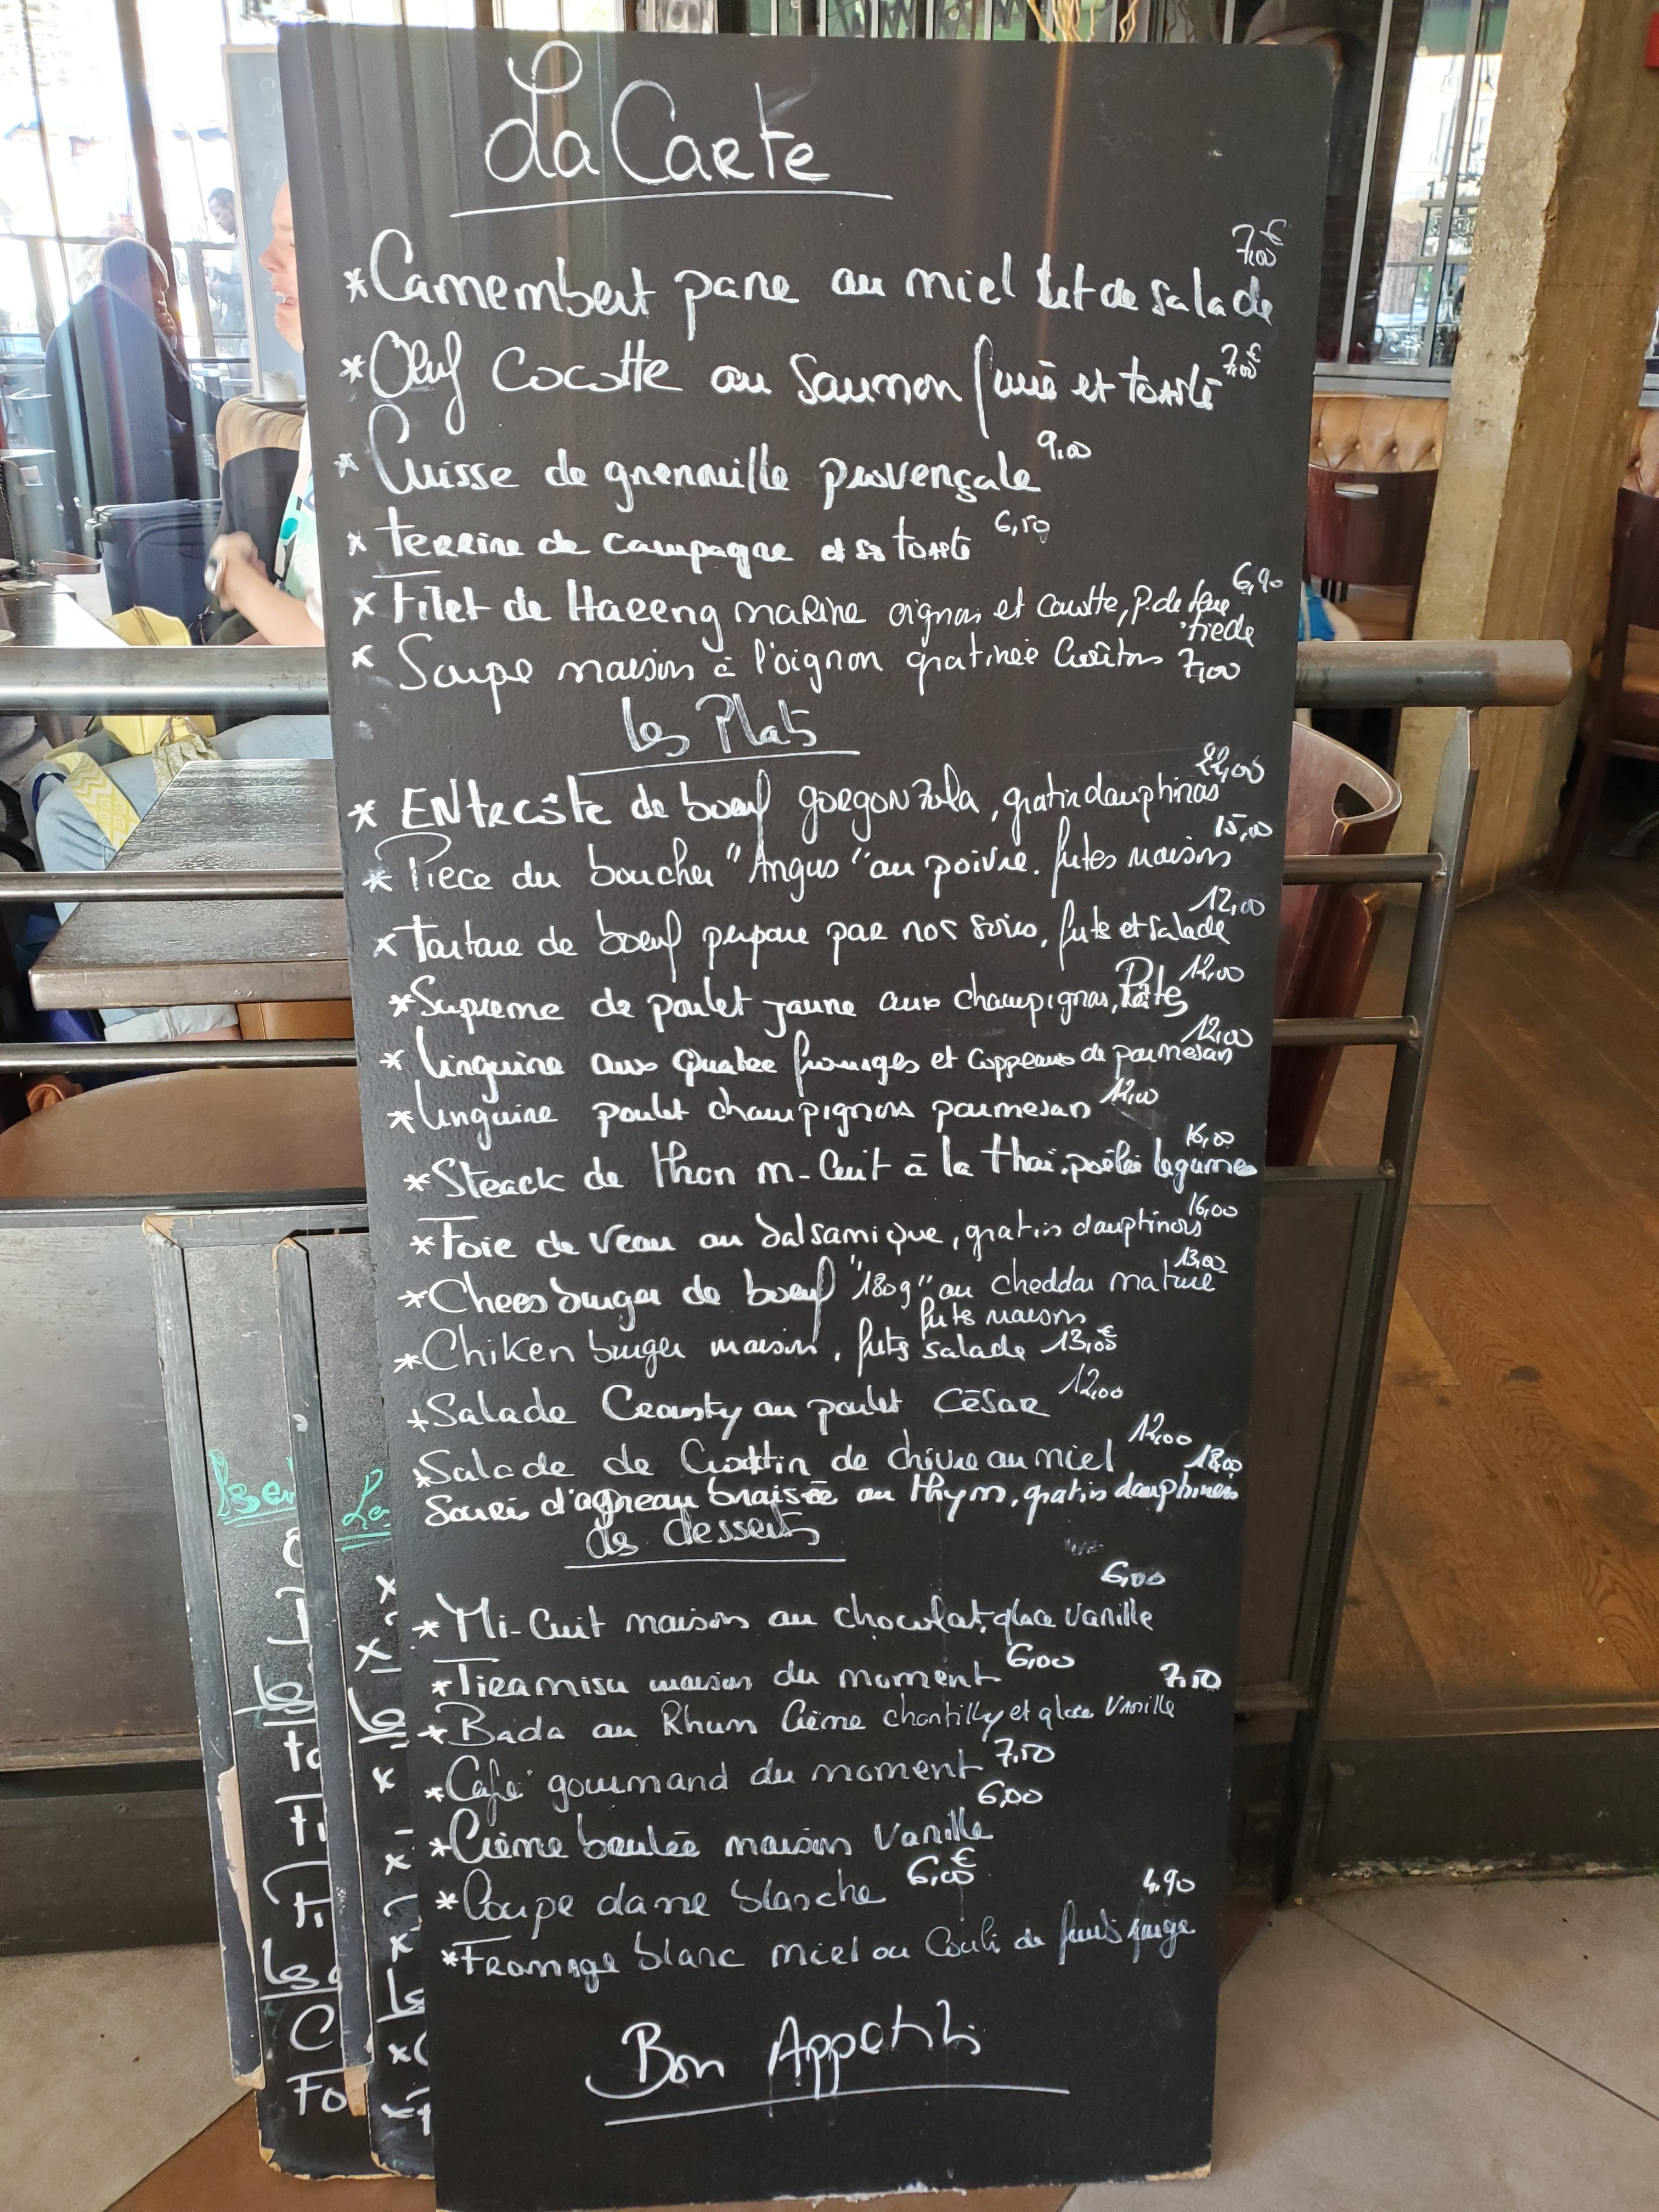 La Carte
7,00€
*Camembert pane au miel lit de salade
*Oeuf Cocotte au Saumon fumé et toasté 7,00€
* Cuisse de grenouille provençale 9,00
* terrine de campagne et sa toasté 6,50
* Filet de Hareng marine oignons et carotte, P. de terre 6,90
tiede
* Soupe maison à l'oignon gratinée Croûtons 7,00
les Plats
* ENtrecôte de boeuf gorgonzola, gratin dauphinois 22,00
* Piece du boucher "Angus" au poivre. frites maison 15,00
* Tartare de boeuf prepare par nos soins, frite et salade 12,00
*Supreme de poulet jaune aux champignons, Pâtes 12,00
* linguine aux quatre fromages et coppeaux de parmesan 12,00
* linguine poulet champignons parmesan 12,00
*Steack de thon m-Cuit à la thai. poêlée legumes 16,00
*Foie de Veau au balsamique, gratin dauphinois 16,00
*Cheesburger de boeuf "180g" au cheddar mature 13,00
frites maison
*Chiken burger maison, frites salade 13,00€
*Salade Crousty au poulet CÉSAR 12,00
*Salade de Crottin de chèvre au miel 12,00
Souris d'agneau braisée au thym, gratin dauphinois 18,00
les desserts
6,00
*Mi-Cuit maison au chocolat, glace vanille
*Tiramisu maison du moment 6,00
*Baba au Rhum Crème chantilly et glace Vanille 7,50
*Café gourmand du moment 7,50
*Crème brulée maison Vanille 6,00
*Coupe dame blanche 6,00€
*Fromage blanc miel ou Couli de fruits rouge 4.90
Bon Appetit
Les
Les
C
FO